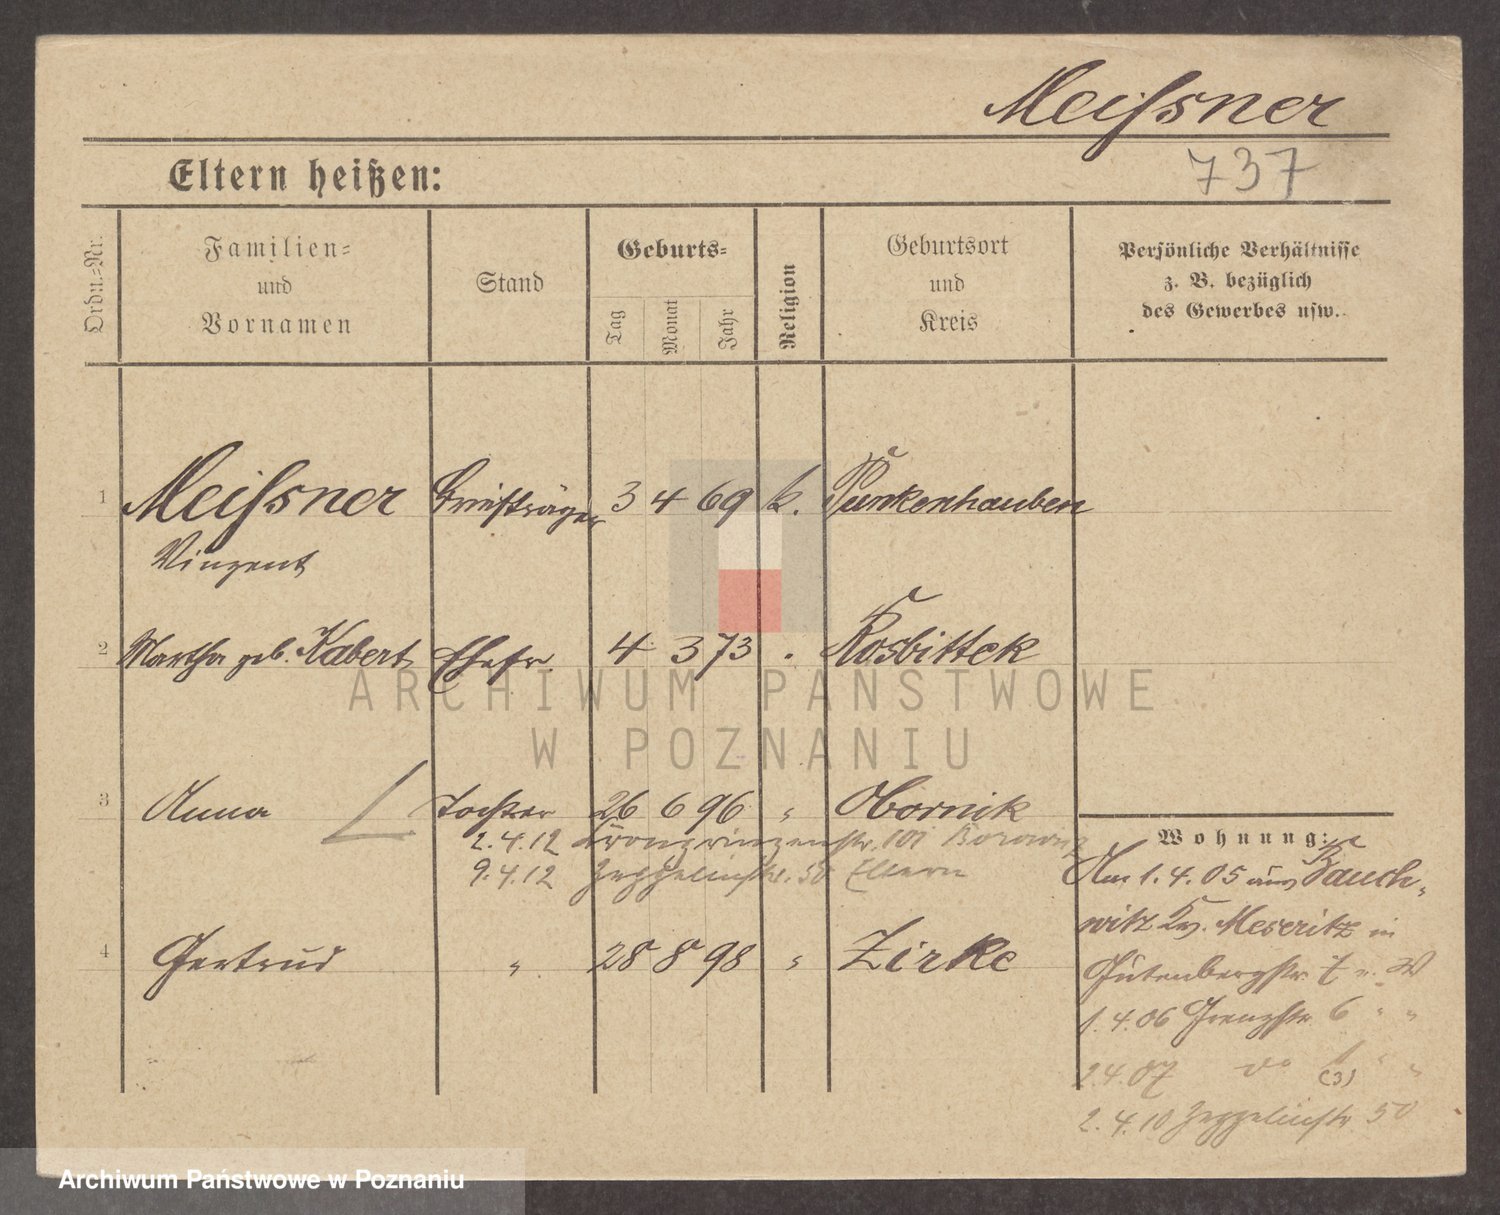 Meißner
737
Eltern heißen:
Ordn.-Nr.
Familien-
und
Vornamen
Stand
Geburts-
Tag
Monat
Jahr
Religion
Geburtsort
und
Kreis
Persönliche Verhältnisse
z. B. bezüglich
des Gewerbes usw.
1 Meißner Briefträger 3 4 69 k. Punkenhauben
Vinzent
2 Martha geb. Kabert Ehefr. 4 3 73 Rosbittek
ARCHIWUM PAŃSTWOWE
W POZNANIU
3 Anna Tochter 26 6 96 " Obornik
2.4.12 Kronprinzenstr. 101
9.4.12 Zeppelinstr. 50 Eltern
4 Gertrud " 28 8 98 " Zirke
Wohnung:
Am 1.4.05 aus Bauch-
witz Kr. Meseritz in
Gutenbergstr.
1.4.06 Grenzstr. 6 " "
2.4.07 do (3) " "
2.4.10 Zeppelinstr 50
Archiwum Państwowe w Poznaniu